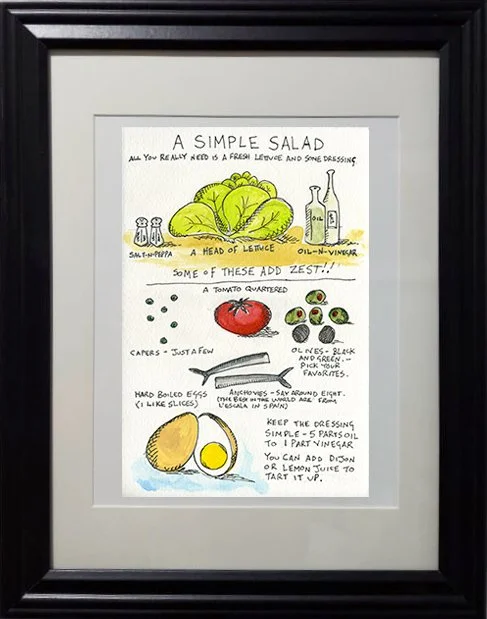 A SIMPLE SALAD
ALL YOU REALLY NEED IS A FRESH LETTUCE AND SOME DRESSING
OIL
SALT-N-PEPPA
A HEAD OF LETTUCE
OIL-N-VINEGAR
SOME OF THESE ADD ZEST!!
A TOMATO QUARTERED
CAPERS - JUST A FEW
OLIVES - BLACK
AND GREEN -
PICK YOUR
FAVORITES.
HARD BOILED EGGS
(I LIKE SLICES)
ANCHOVIES - SAY AROUND EIGHT.
(THE BEST IN THE WORLD ARE FROM
L'ESCALA IN SPAIN)
KEEP THE DRESSING
SIMPLE - 5 PARTS OIL
TO 1 PART VINEGAR
YOU CAN ADD DIJON
OR LEMON JUICE TO
TART IT UP.